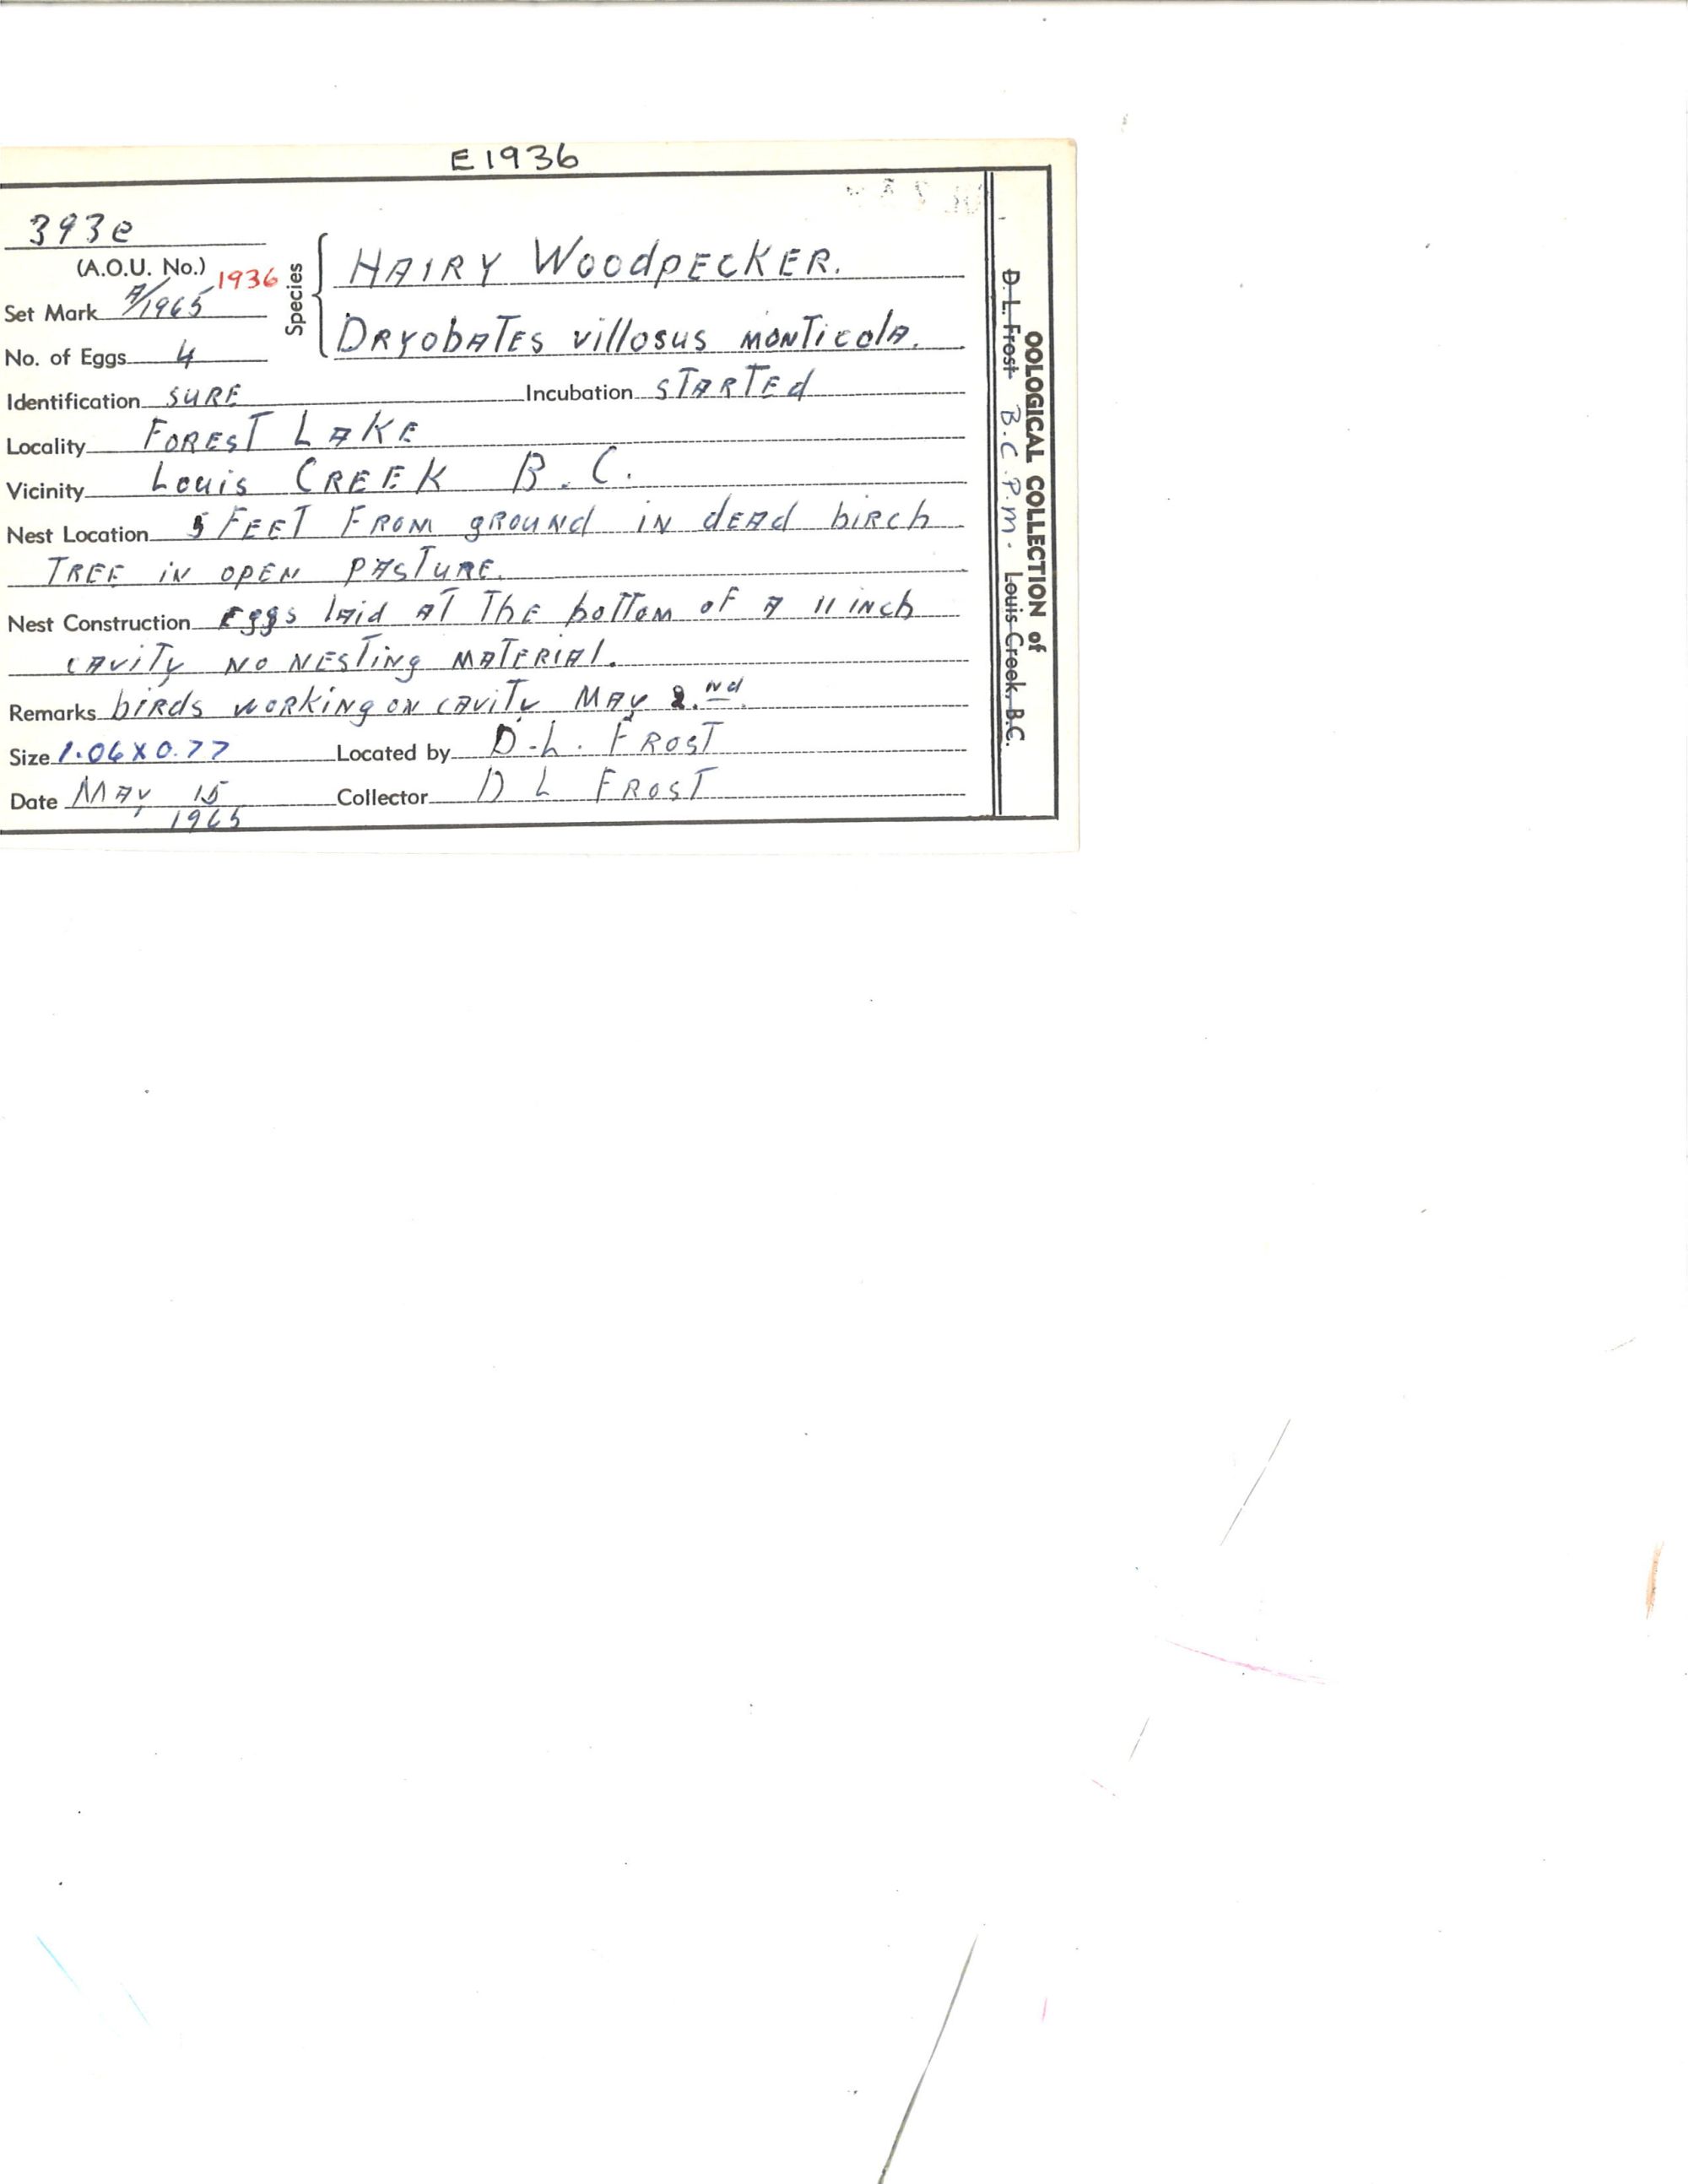 E1936
393e
(A.O.U. No.) 1936
Set Mark A/1965
No. of Eggs 4
Species
HAIRY WoodpECKER.
DRYobATEs villosus MONTicolA.
Identification SURE Incubation STARTEd
Locality FOREST LAKE
Vicinity Louis CREEK B.C.
Nest Location 5 FEET FROM gROUNd IN dEAd biRch
TREE iN OPEN PASTURE.
Nest Construction Eggs lAid AT ThE boTTom oF A 11 iNch
cAViTy NO NESTiNg MATERIAl.
Remarks biRds woRkiNg ON cAViTy MAy 2.Nd.
Size 1.06 X 0.77 Located by D.L. FROST
Date MAy 15 Collector D L FROST
1965
OOLOGICAL COLLECTION of
D. L. Frost B.C.P.M. Louis Creek, B.C.